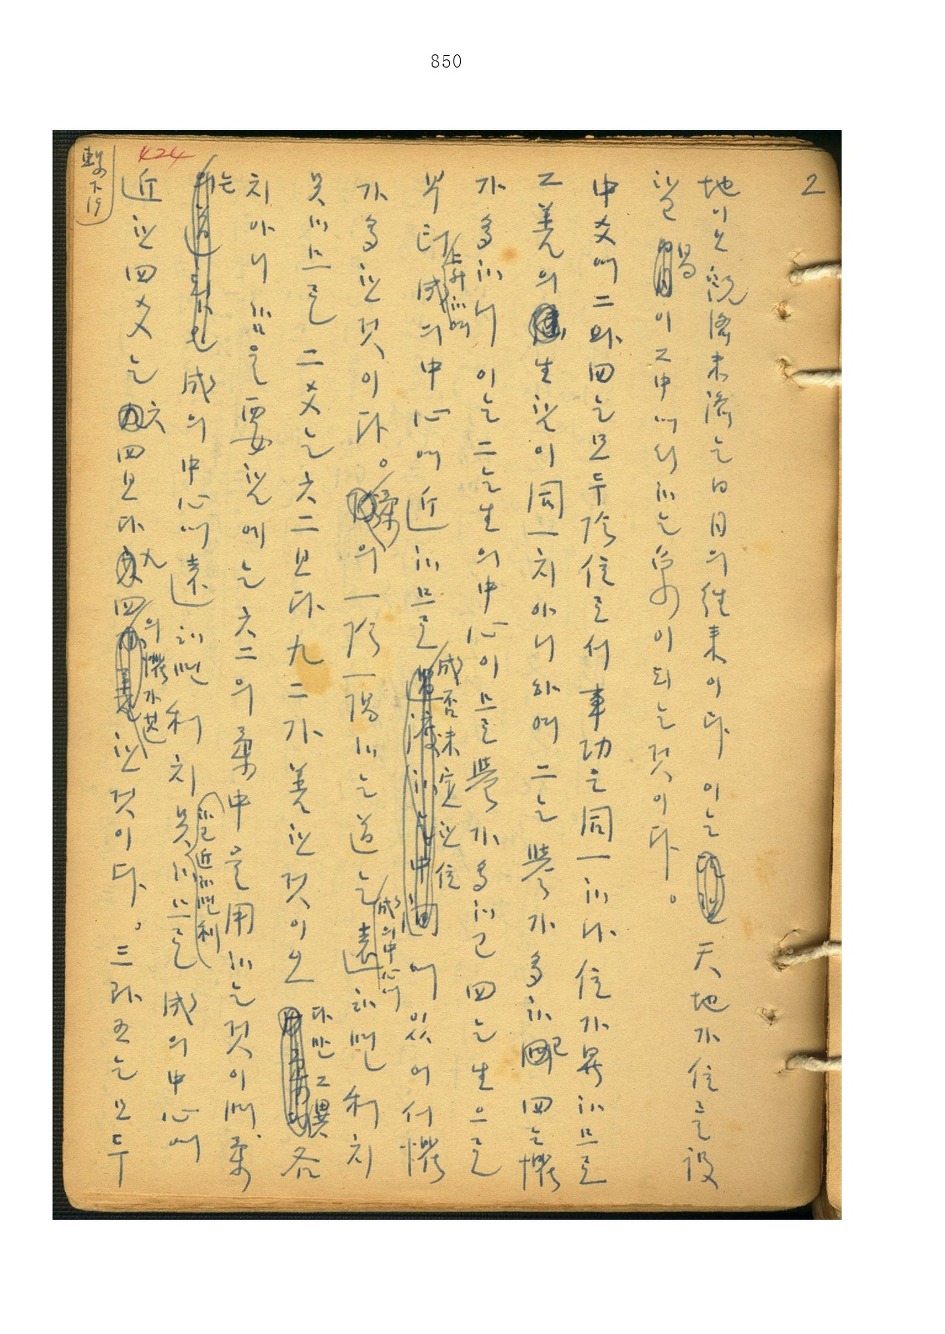 850
2
地이오 旣濟未濟는 日月의 往來이다 이는 天地가 位를 設
한 易이 그 中에서 하는 象이 되는 것이다。
中爻에 二와 四는 모두 陰位로서 事功은 同一하나 位가 異하므로
그 善의 이 同一치 아니하여 二는 譽가 多하고 四는 懼
가 多하니 이는 二는 生의 中心이므로 譽가 多하고 四는 生으로
부터 成의 中心에 近하므로 成否未定한 位에 있어서 懼
가 多한 것이다。 柔의 一陰一陽하는 道는 成의 中心에 遠하면 利치
못하므로 二爻는 六二보다 九二가 善한 것이오 다만 그 異 各
치 아니함을 要한 에는 六二의 柔中을 用하는 것이며 柔
는 成의 中心에 遠하면 利치 못하므로 成의 中心에
近한 四爻는 六四보다 九四의 懼가 한 것이다。 三과 五는 모두
繫下 19
424